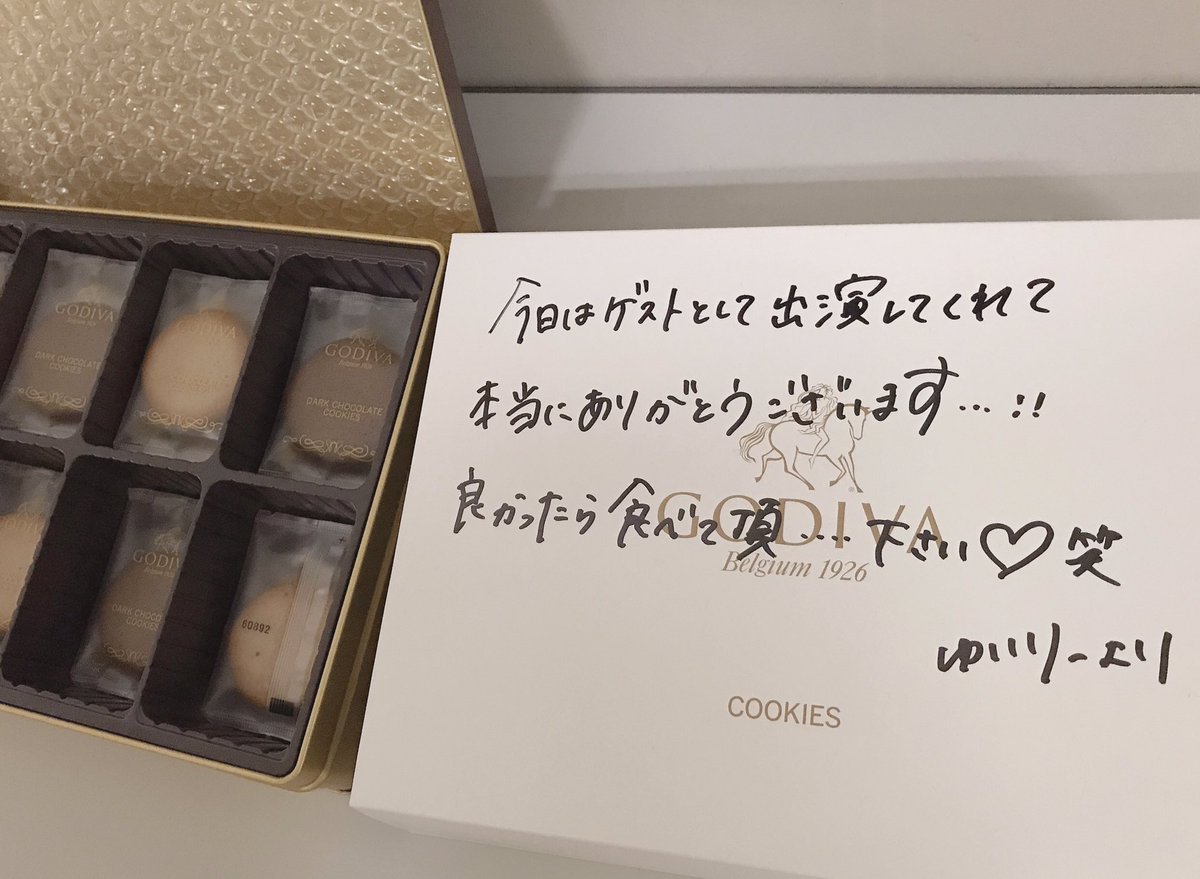 今日はゲストとして出演してくれて
本当にありがとうございます…!!
良かったら食べて頂…. 下さい♡笑
ゆいリーより
GODIVA
Belgium 1926
COOKIES
GODIVA
DARK CHOCOLATE
COOKIES
GODIVA
GODIVA
Belgium 1926
DARK CHOCOLATE
COOKIES
GODIVA
DARK CHOCO
COOKIES
60892